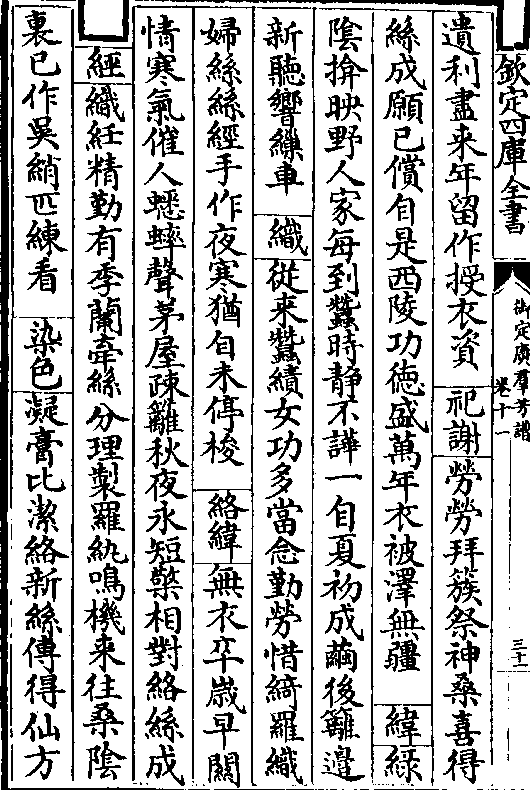 欽定四庫全書
御定廣羣芳譜
卷十一
三十一
遺利盡来年留作授衣資　祀謝　勞勞拜簇祭神桑喜得
絲成願已償自是西陵功徳盛萬年衣被澤無疆　緯　緑
陰揜映野人家每到蠶時静不譁一自夏初成繭後籬邉
新聽響繅車　織　從来蠶績女功多當念勤勞惜綺羅織
婦絲絲經手作夜寒猶自未停梭　絡緯　無衣卒嵗早關
情寒氣催人蟋蟀聲茅屋疎籬秋夜永短檠相對絡絲成
經　織紝精勤有季蘭牽絲分理製羅紈鳴機来往桑陰
裏已作吳綃匹練看　染色　凝膏比潔絡新絲傅得仙方